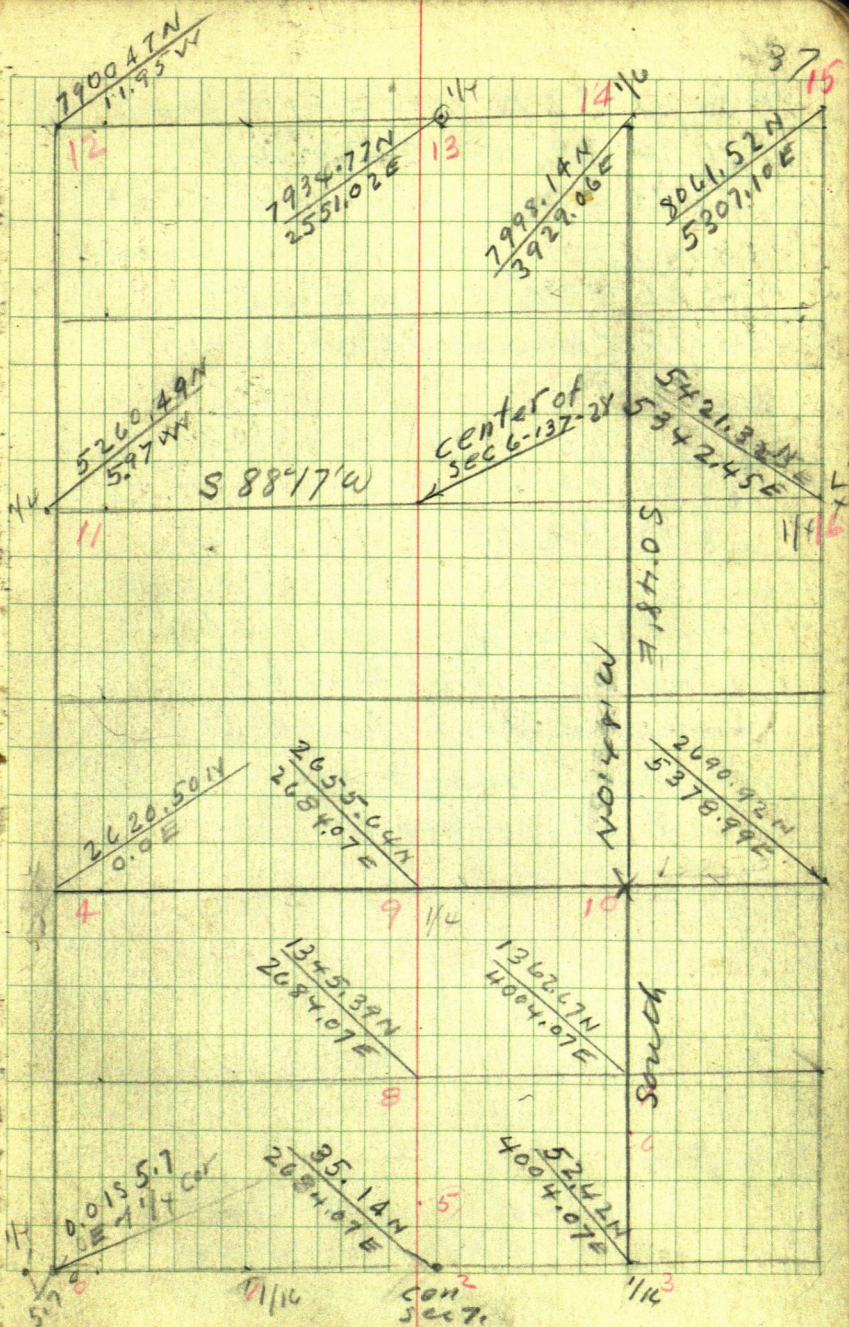 37
7900.47 N
11.95 W
12
1/4
13
7934.77 N
2551.02 E
14
1/16
7998.14 N
3929.06 E
15
8061.52 N
5307.10 E
5260.49 N
5.97 W
11
S 88°17' W
center of
sec 6-137-28
5342.45 E
1/4
16
S 0.48' E
N 0°48' W
2620.50 N
0.0 E
4
2655.64 N
2684.07 E
9
1/4
10
2690.92 N
5378.99 E
1345.39 N
2684.07 E
8
1362.67 N
4004.07 E
South
6
35.14 N
2684.07 E
5
52.42 N
4004.07 E
1/4
5.7
1/16
2
cen
sec 7.
1/16
3